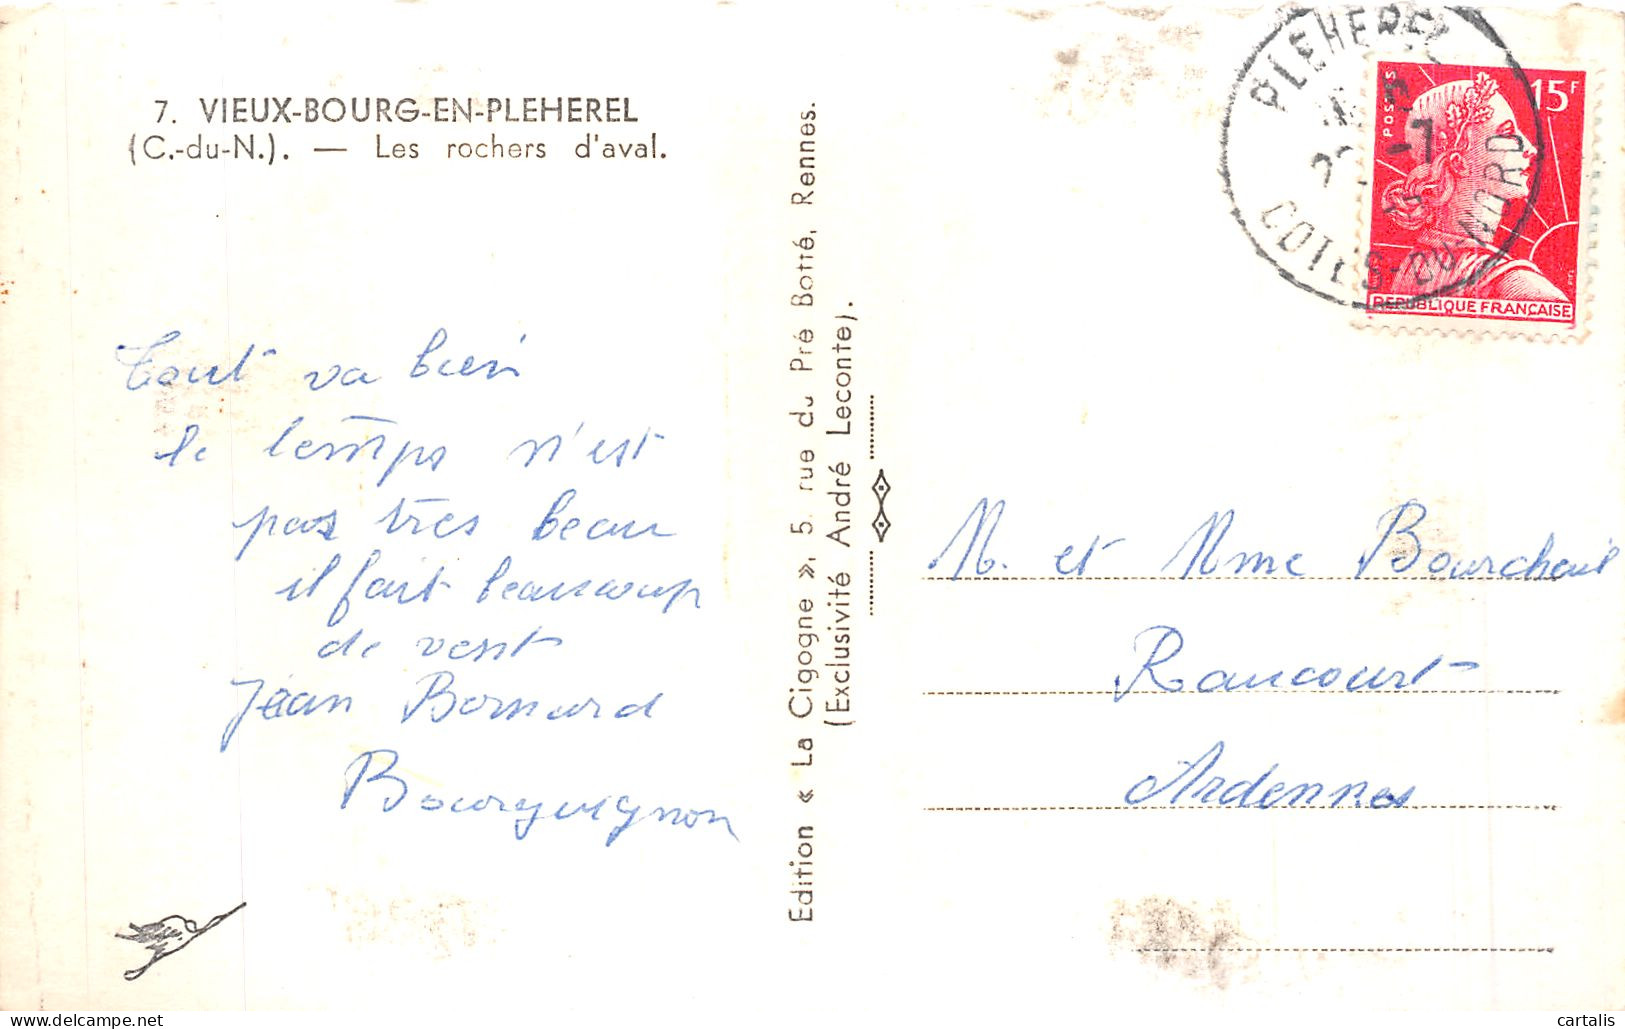 7. VIEUX-BOURG-EN-PLEHEREL
(C.-du-N.). — Les rochers d'aval.
Tout va bien
le temps n'est
pas très beau
il fait beaucoup
de vent
Jean Bernard
Bourguignon
Edition « La Cigogne », 5, rue du Pré Botté, Rennes.
(Exclusivité André Leconte).
PLEHEREL
-7
COTES-DU-NORD
POSTES
15F
REPUBLIQUE FRANÇAISE
M. et Mme
Raucourt
Ardennes
cartalis